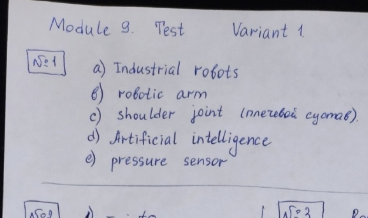 Module 9. Test Variant 1
№1
a) Industrial robots
б) robotic arm
c) shoulder joint (плечевой сустав).
d) Artificial intelligence
e) pressure sensor
№2
№3